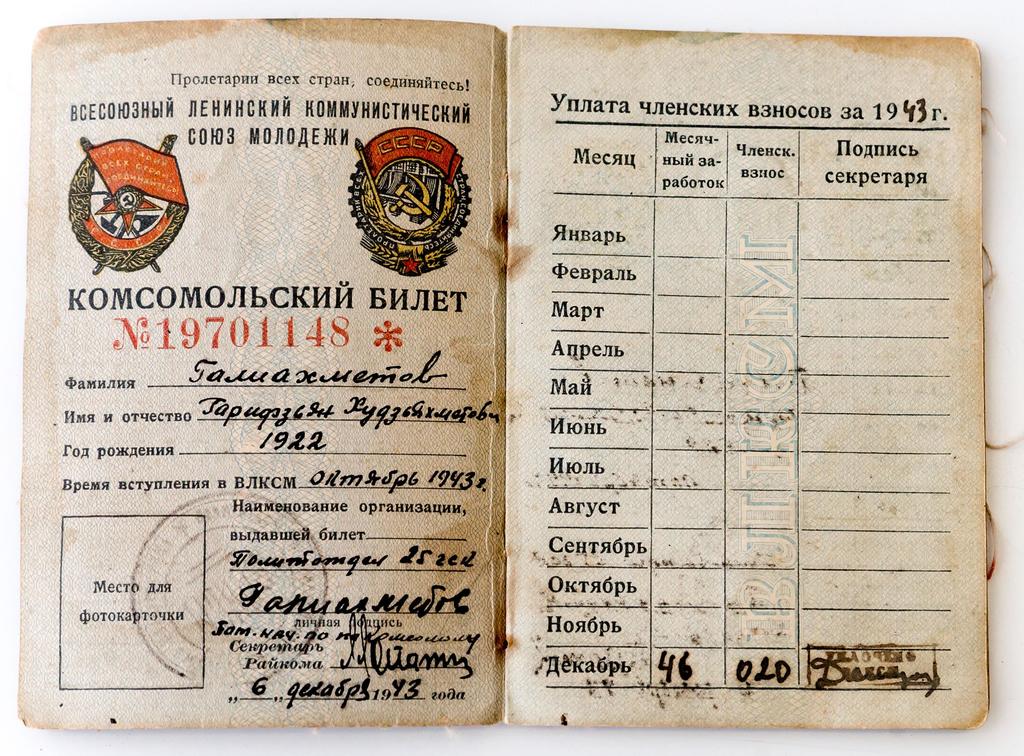 Пролетарии всех стран, соединяйтесь!
ВСЕСОЮЗНЫЙ ЛЕНИНСКИЙ КОММУНИСТИЧЕСКИЙ
СОЮЗ МОЛОДЕЖИ
ПРОЛЕТАРИИ
ВСЕХ СТРАН
СОЕДИНЯЙТЕСЬ
СССР
СССР
КОМСОМОЛЬСКИЙ БИЛЕТ
№19701148 *
Фамилия Галиахметов
Имя и отчество Гарифзьян Худзьяхметович
Год рождения 1922
Время вступления в ВЛКСМ октябрь 1943 г.
Наименование организации,
выдавшей билет
Политотдел 25 гсп
Место для
фотокарточки
Галиахметов
личная подпись
Пом. нач. по по комсомолу
Секретарь
Райкома
„6„ декабрь 1943 года
Уплата членских взносов за 1943 г.
Месяц Месячный заработок Членск. взнос Подпись секретаря
Январь
Февраль
Март
Апрель
Май
Июнь
Июль
Август
Сентябрь
Октябрь
Ноябрь
Декабрь 46 020
ВЛКСМ